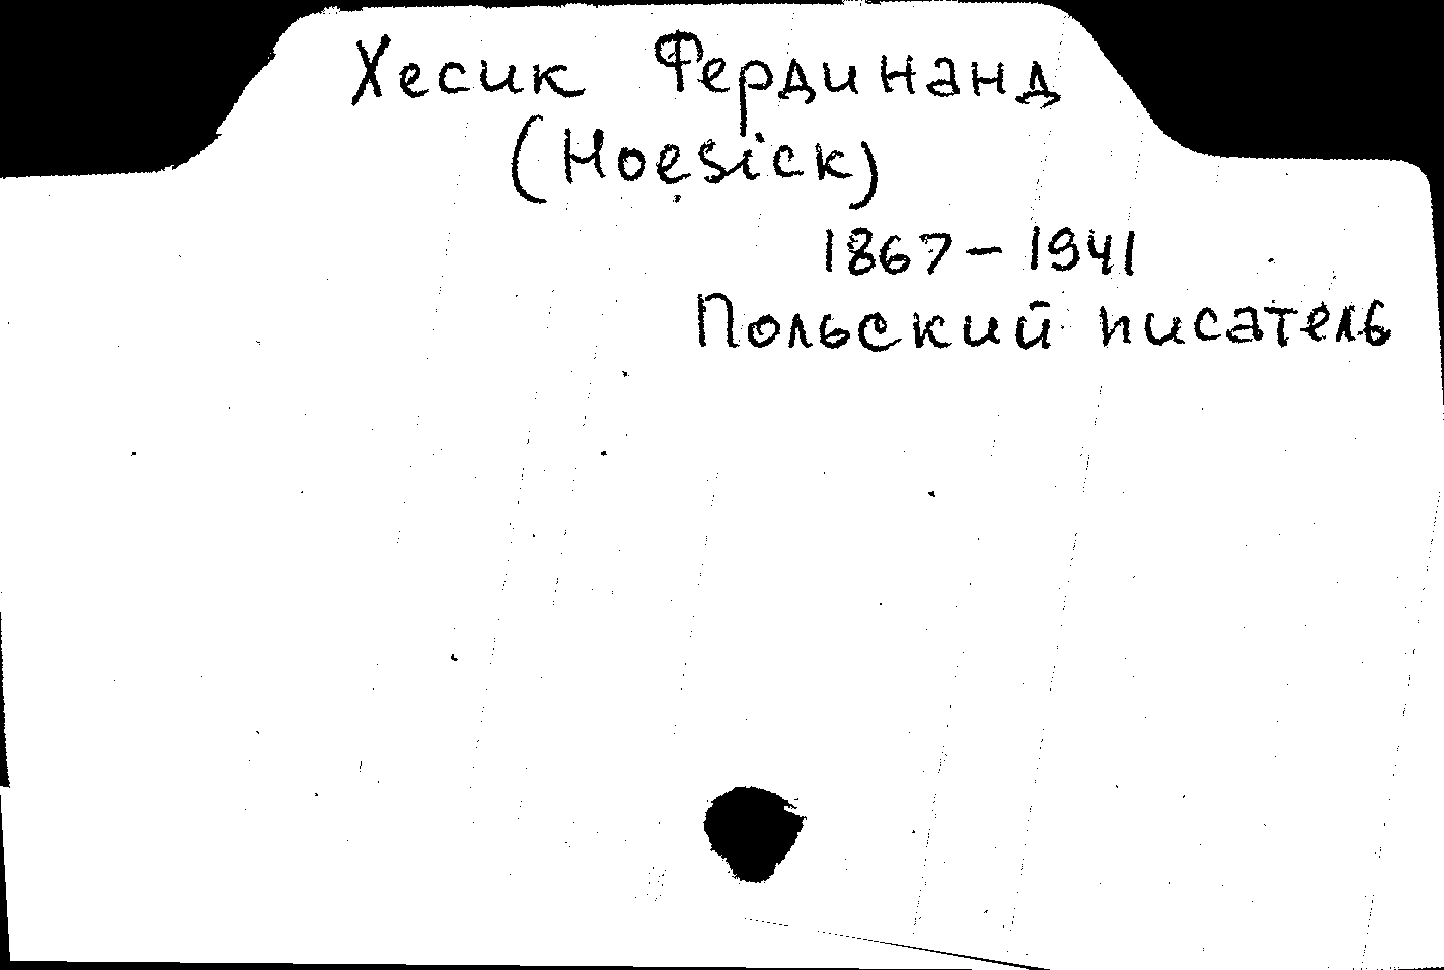 Хесик Фердинанд
(Hoesick)
1867 - 1941
Польский писатель